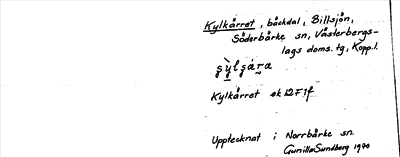 Kylkårret, bäckdal, Billsjön,
Söderbärke sn, Västerbergs-
lags doms. tg, Kopp.l.
Kylkårret ek 12F1f
Upptecknat i Norrbärke sn.
Gunilla Sundberg 1970